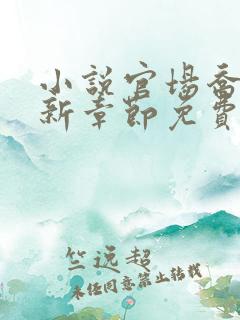 小說官場喬
新章節免費
竺远超
未经同意禁止转载